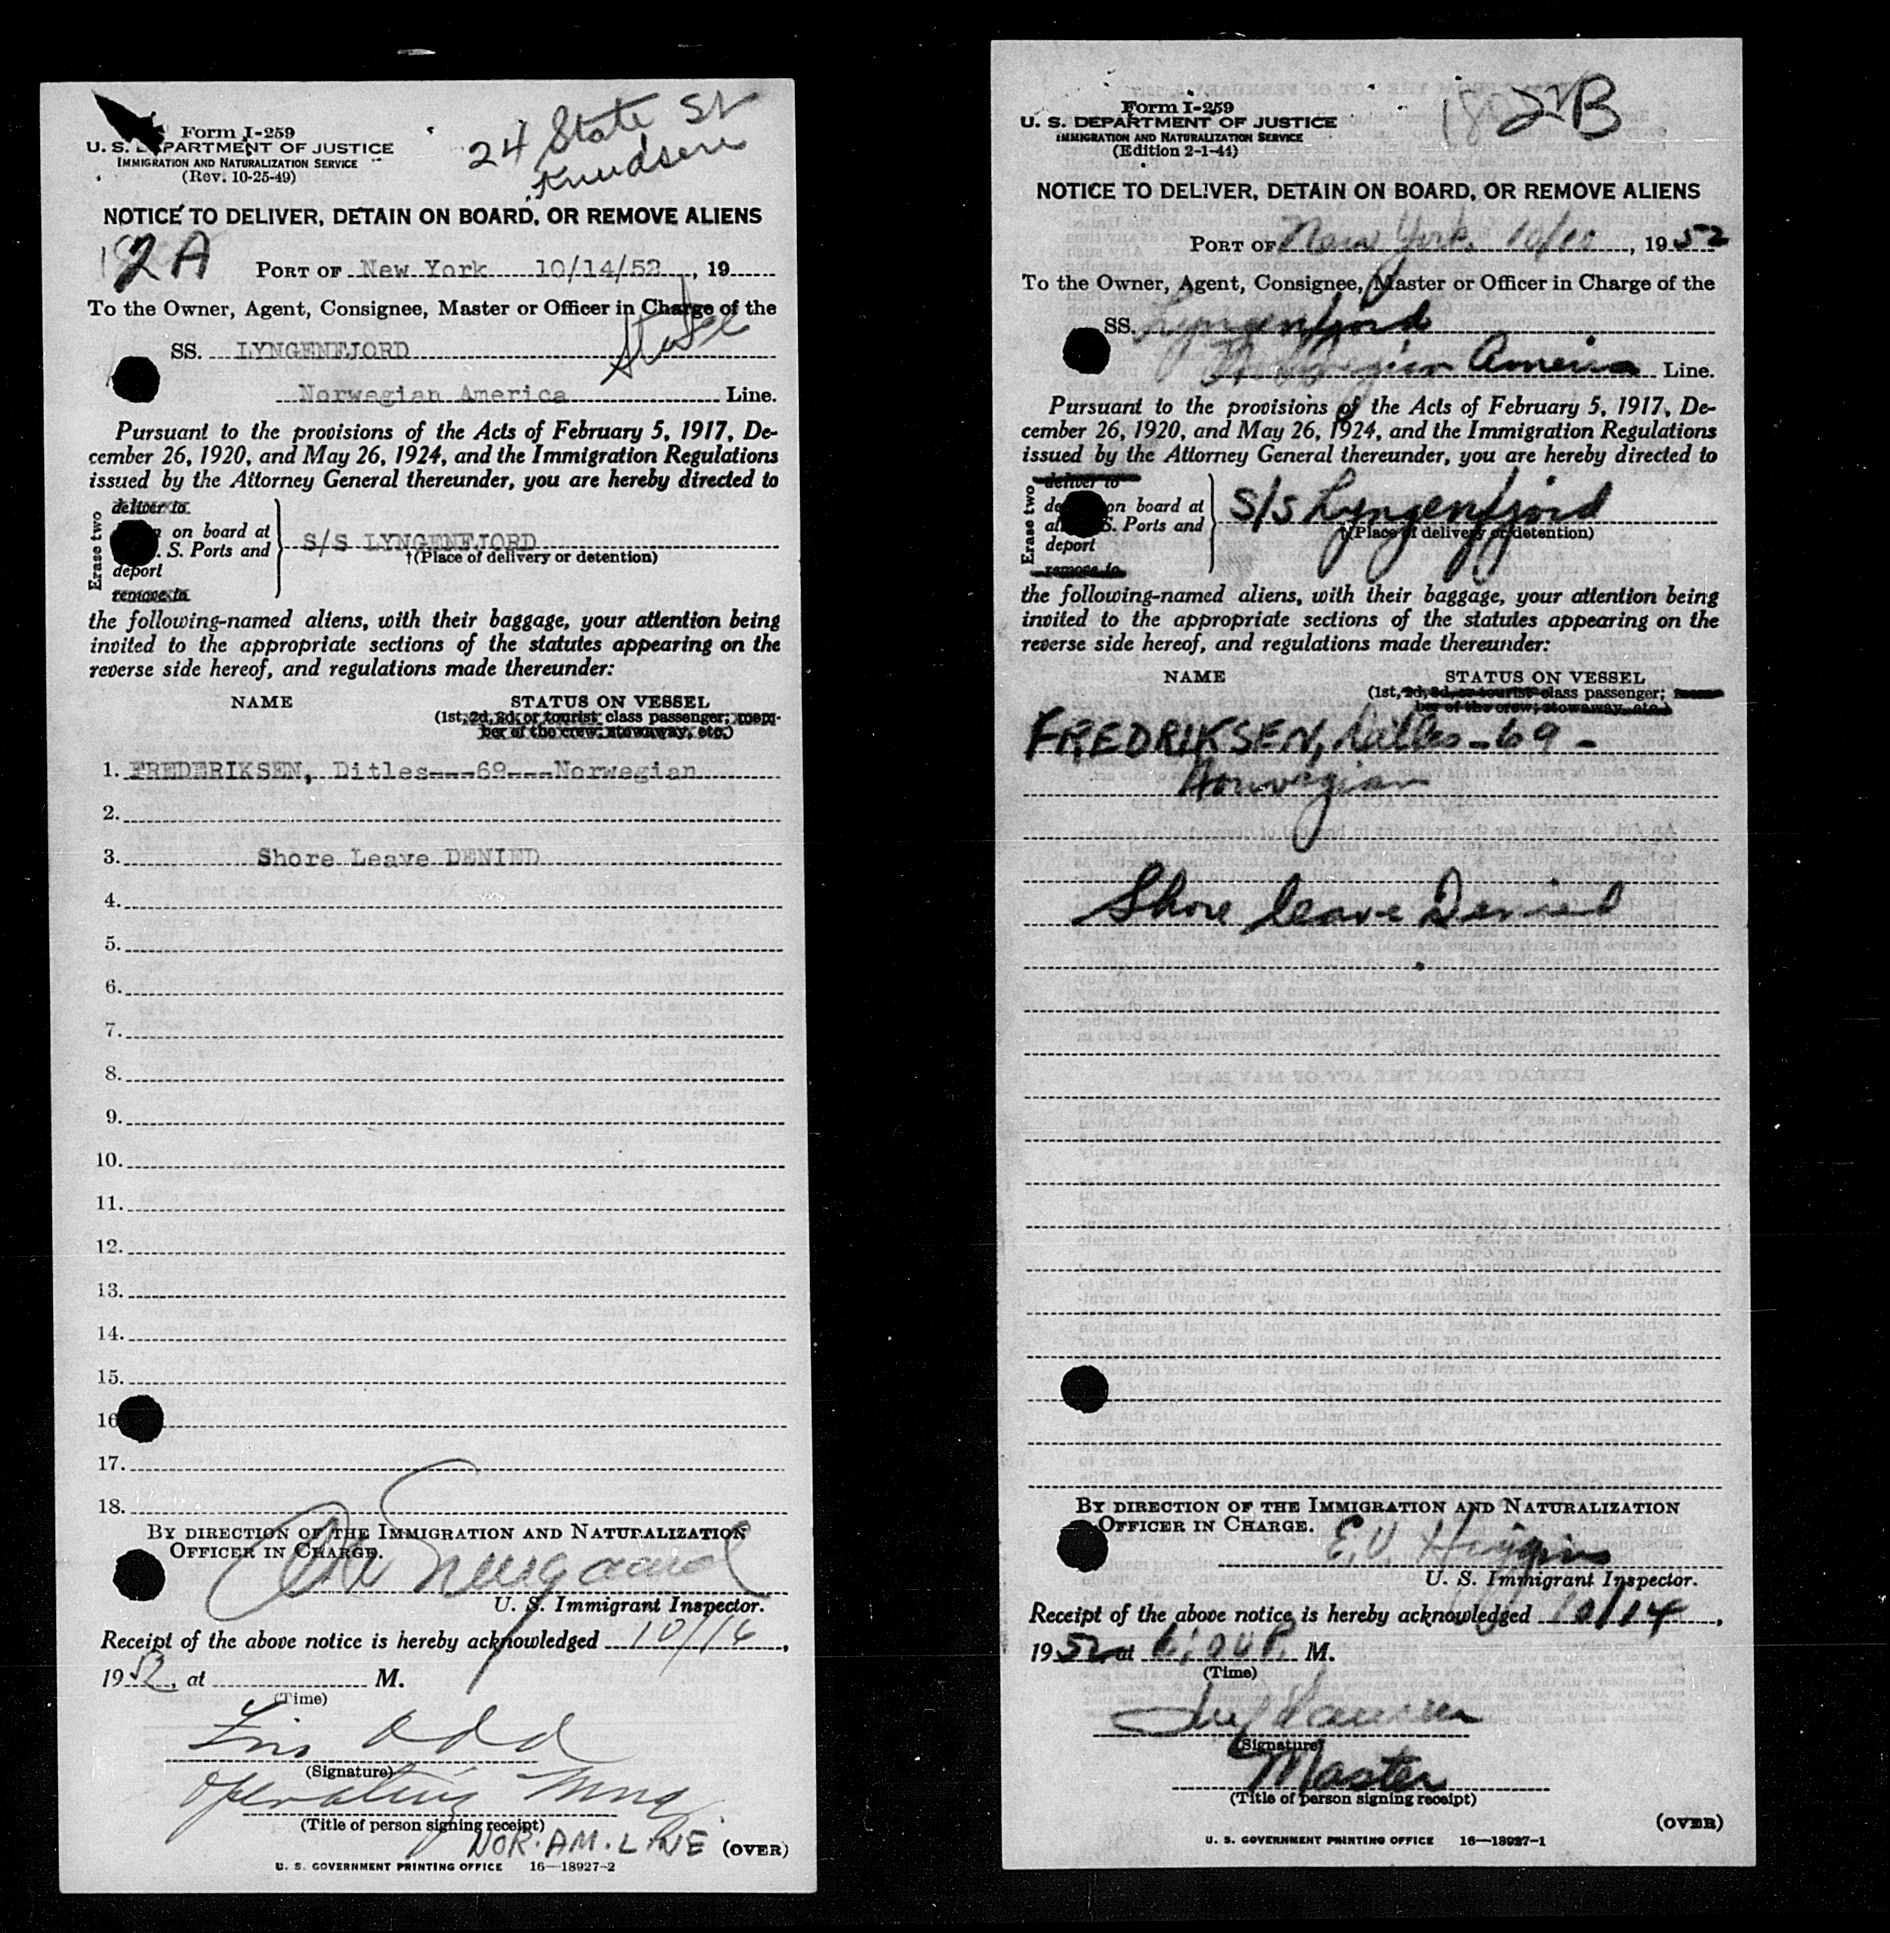 24 State St
Knudsen
Form I-259
U. S. DEPARTMENT OF JUSTICE
IMMIGRATION AND NATURALIZATION SERVICE
(Rev. 10-25-49)
NOTICE TO DELIVER, DETAIN ON BOARD, OR REMOVE ALIENS
2A
PORT OF New York 10/14/52, 19
To the Owner, Agent, Consignee, Master or Officer in Charge of the
SS. LYNGENFJORD
Norwegian America Line.
Pursuant to the provisions of the Acts of February 5, 1917, De-
cember 26, 1920, and May 26, 1924, and the Immigration Regulations
issued by the Attorney General thereunder, you are hereby directed to
Erase two
deliver to
on board at
S. Ports and
deport
remove to
S/S LYNGENFJORD
†(Place of delivery or detention)
the following-named aliens, with their baggage, your attention being
invited to the appropriate sections of the statutes appearing on the
reverse side hereof, and regulations made thereunder:
NAME STATUS ON VESSEL
(1st, 2d, 3d, or tourist class passenger; mem-
ber of the crew; stowaway, etc.)
1. FREDERIKSEN, Ditles---69---Norwegian
2.
3. Shore Leave DENIED
4.
5.
6.
7.
8.
9.
10.
11.
12.
13.
14.
15.
16
17.
18.
BY DIRECTION OF THE IMMIGRATION AND NATURALIZATION
OFFICER IN CHARGE.
U. S. Immigrant Inspector.
Receipt of the above notice is hereby acknowledged 10/16,
1952, at M.
(Time)
Odd
(Signature)
Operating Mng.
(Title of person signing receipt)
NOR. AM. LINE (OVER)
U. S. GOVERNMENT PRINTING OFFICE 16—18927-2
2B
Form I-259
U. S. DEPARTMENT OF JUSTICE
IMMIGRATION AND NATURALIZATION SERVICE
(Edition 2-1-44)
NOTICE TO DELIVER, DETAIN ON BOARD, OR REMOVE ALIENS
PORT OF New York 10/10, 1952
To the Owner, Agent, Consignee, Master or Officer in Charge of the
SS. Lyngenfjord
Norwegian America Line.
Pursuant to the provisions of the Acts of February 5, 1917, De-
cember 26, 1920, and May 26, 1924, and the Immigration Regulations
issued by the Attorney General thereunder, you are hereby directed to
Erase two
deliver to
on board at
S. Ports and
deport
remove to
S/S Lyngenfjord
†(Place of delivery or detention)
the following-named aliens, with their baggage, your attention being
invited to the appropriate sections of the statutes appearing on the
reverse side hereof, and regulations made thereunder:
NAME STATUS ON VESSEL
(1st, 2d, 3d, or tourist class passenger; mem-
ber of the crew; stowaway, etc.)
FREDRIKSEN, Ditles - 69 -
Norwegian
Shore leave Denied
BY DIRECTION OF THE IMMIGRATION AND NATURALIZATION
OFFICER IN CHARGE.
E.V. Higgins
U. S. Immigrant Inspector.
Receipt of the above notice is hereby acknowledged 10/14,
1952 at P. M.
(Time)
(Signature)
Master
(Title of person signing receipt)
(OVER)
U. S. GOVERNMENT PRINTING OFFICE 16—18927-1